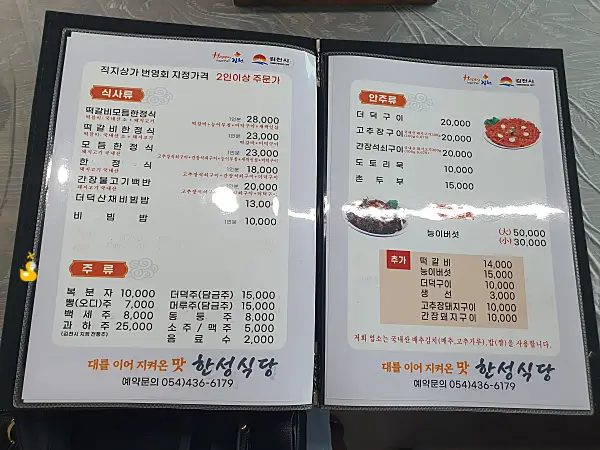 Happy together 김천 김천시
직지상가 번영회 지정가격 2인이상 주문가
식사류
떡갈비모듬한정식 1인분 28,000
떡갈비한정식 1인분 23,000
모듬한정식 1인분 23,000
돼지고기 국내산
한정식 1인분 18,000
돼지고기 국내산
간장불고기백반 1인분 20,000
돼지고기 국내산
더덕산채비빔밥 13,000
비빔밥 1인분 10,000
주류
복분자 10,000 더덕주(담금주) 15,000
뽕(오디)주 7,000 머루주(담금주) 15,000
백세주 8,000 동동주 8,000
과하주 25,000 소주/맥주 5,000
(김천시 지정 전통주) 음료수 2,000
대를 이어 지켜온 맛 한성식당
예약문의 054)436-6179
Happy together 김천 김천시
안주류
더덕구이 20,000
고추장구이 20,000
간장석쇠구이 20,000
도토리묵 10,000
촌두부 15,000
능이버섯 (大) 50,000
(小) 30,000
추가
떡갈비 14,000
능이버섯 15,000
더덕구이 10,000
생선 3,000
고추장돼지구이 10,000
간장돼지구이 10,000
저희 업소는 국내산 배추김치(배추,고추가루), 밥(쌀)을 사용합니다.
대를 이어 지켜온 맛 한성식당
예약문의 054)436-6179